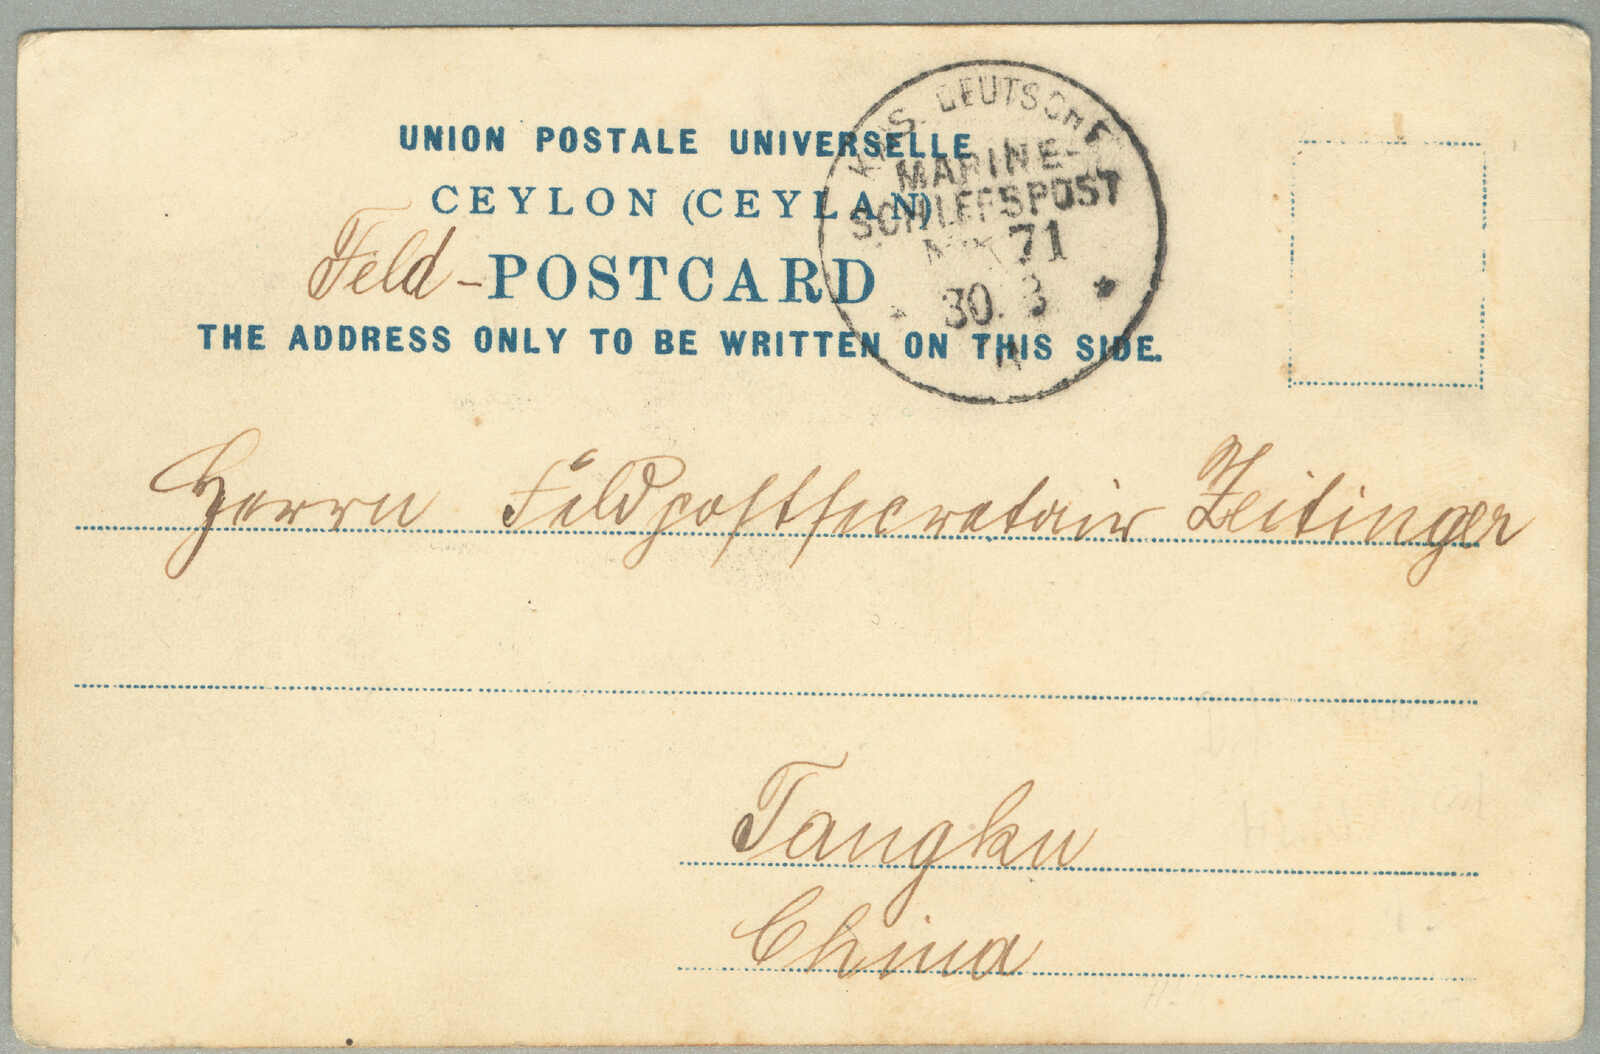 UNION POSTALE UNIVERSELLE
CEYLON (CEYLAN)
Feld-POSTCARD
THE ADDRESS ONLY TO BE WRITTEN ON THIS SIDE.
KAIS. DEUTSCHE
MARINE-
SCHIFFSPOST
No 71
30. 3
Herrn Feldpostsecretair Zeitinger
Tangku
China